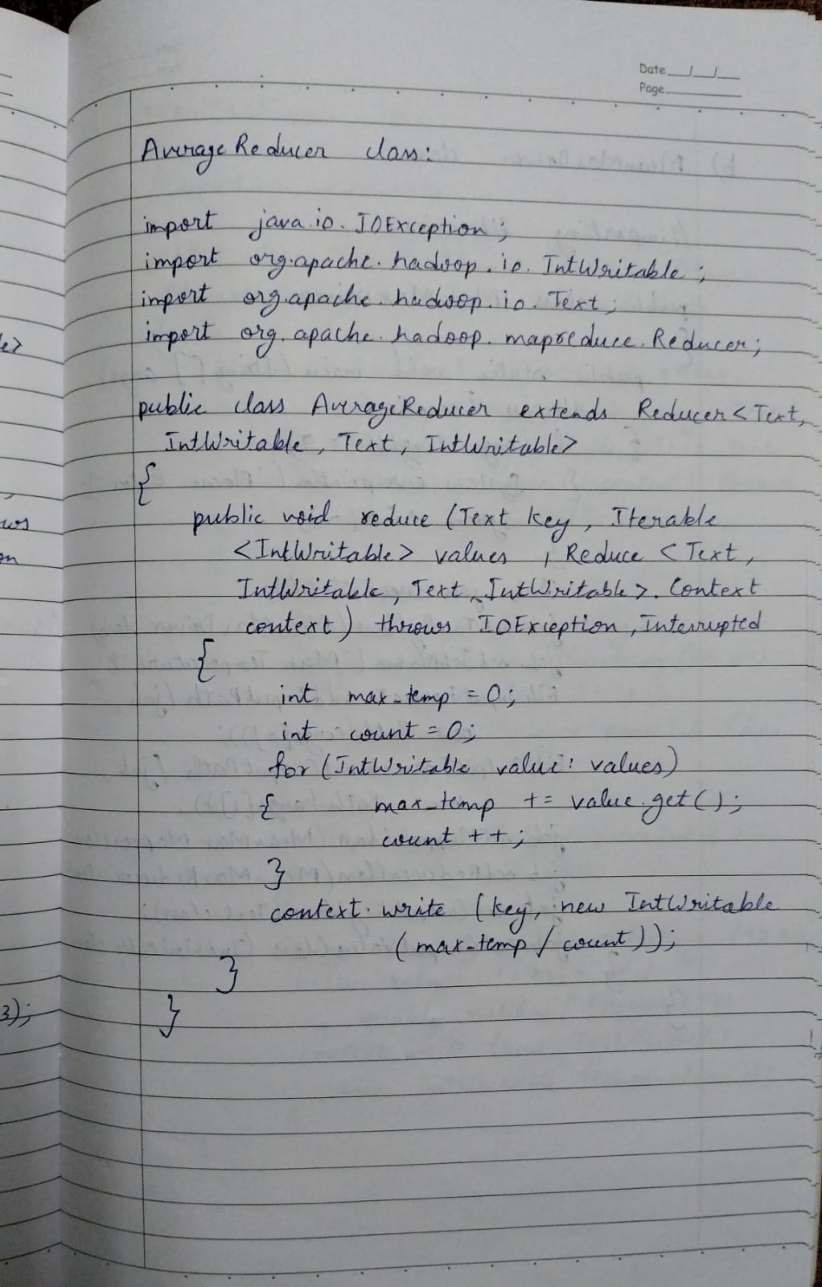 Date __/__/__
Page
AverageReducer class:
import java.io.IOException;
import org.apache.hadoop.io.IntWritable;
import org.apache.hadoop.io.Text;
import org.apache.hadoop.mapreduce.Reducer;
le>
public class AverageReducer extends Reducer<Text,
IntWritable, Text, IntWritable>
{
public void reduce (Text key, Iterable
<IntWritable> values, Reduce <Text,
IntWritable, Text, IntWritable>. Context
context) throws IOException, Interrupted
{
int max_temp = 0;
int count = 0;
for (IntWritable value: values)
{ max_temp += value.get();
count ++;
}
context.write (key, new IntWritable
(max-temp / count));
}
3);
}